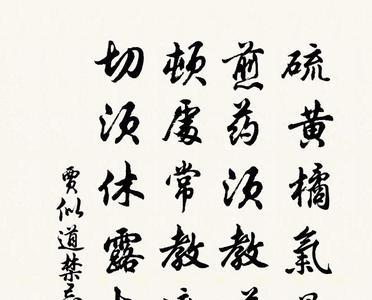 硫黄橘氣
煎药须教
頓處常教
切须休露
賈似道禁